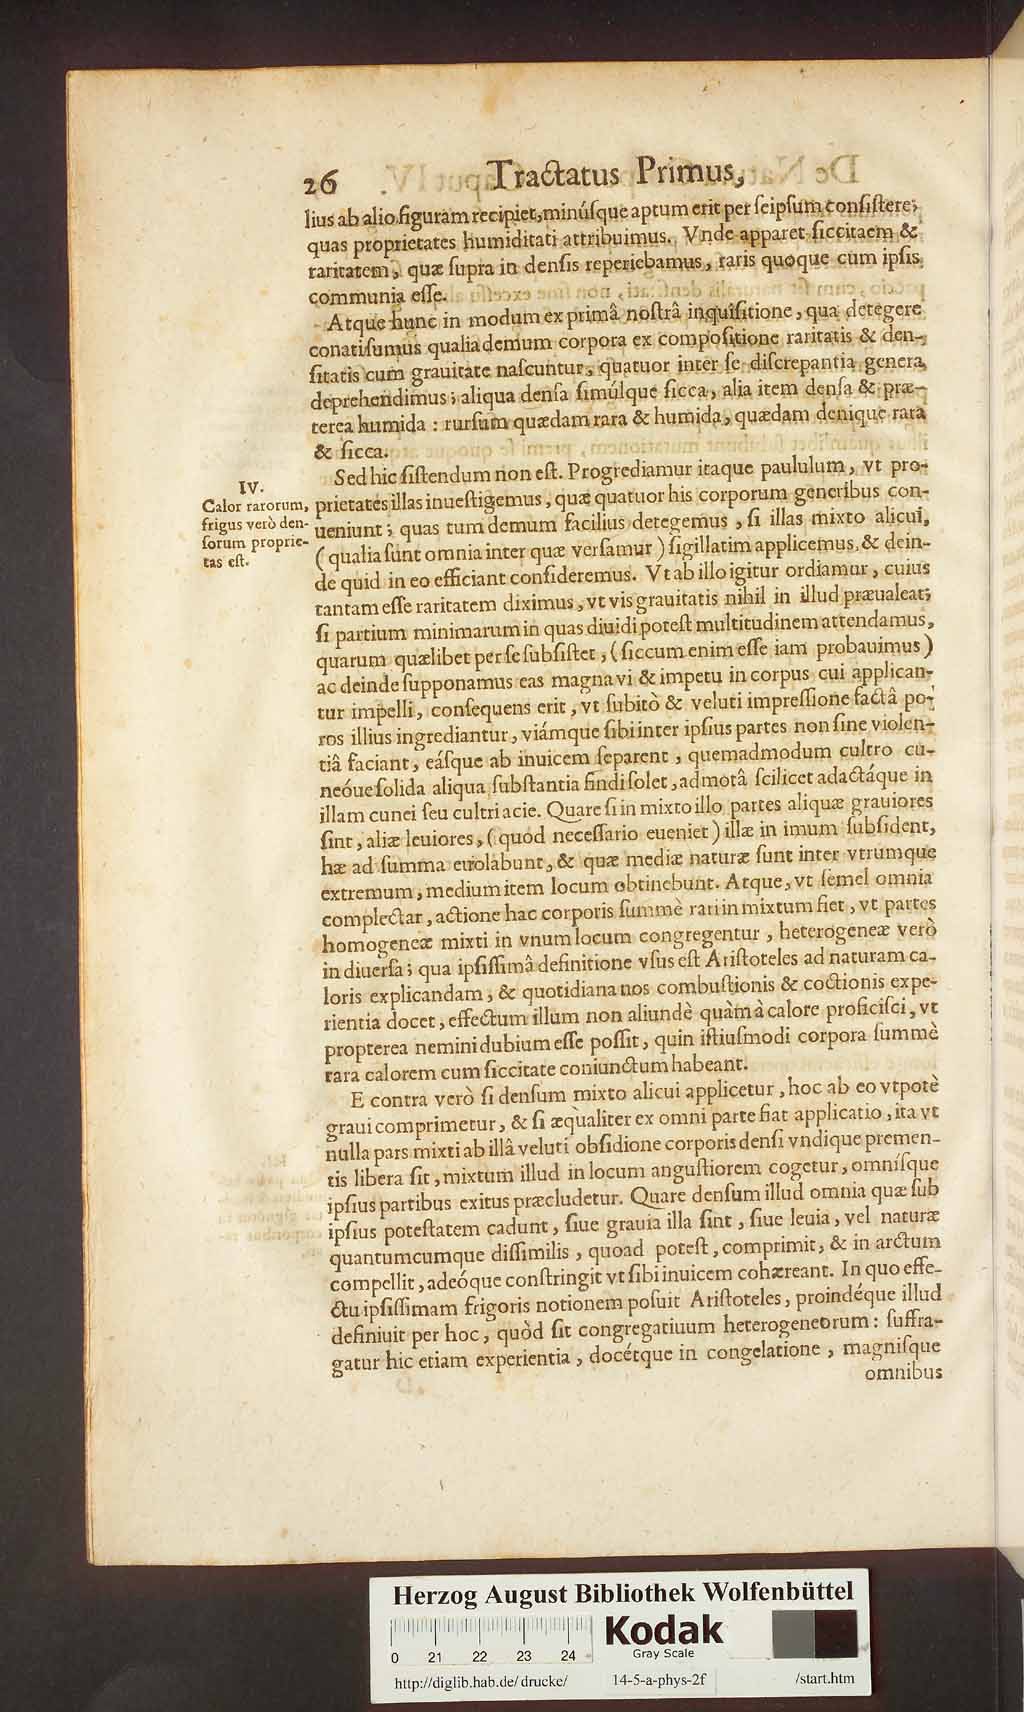 26 Tractatus Primus,
lius ab alio figuram recipiet, minúsque aptum erit per seipsum consistere;
quas proprietates humiditati attribuimus. Vnde apparet siccitaem &
raritatem, quæ supra in densis reperiebamus, raris quoque cum ipsis
communia esse.
Atque hunc in modum ex primâ nostrâ inquisitione, qua detegere
conati sumus qualia demum corpora ex compositione raritatis & den-
sitatis cum grauitate nascuntur, quatuor inter se discrepantia genera
deprehendimus; aliqua densa simúlque sicca, alia item densa & præ-
terea humida : rursum quædam rara & humida, quædam denique rara
& sicca.
IV.
Calor rarorum,
frigus verò den-
sorum proprie-
tas est.
Sed hic sistendum non est. Progrediamur itaque paululum, vt pro-
prietates illas inuestigemus, quæ quatuor his corporum generibus con-
ueniunt; quas tum demum facilius detegemus, si illas mixto alicui,
(qualia sunt omnia inter quæ versamur) sigillatim applicemus, & dein-
de quid in eo efficiant consideremus. Vt ab illo igitur ordiamur, cuius
tantam esse raritatem diximus, vt vis grauitatis nihil in illud præualeat;
si partium minimarum in quas diuidi potest multitudinem attendamus,
quarum quælibet per se subsistet, (siccum enim esse iam probauimus)
ac deinde supponamus eas magna vi & impetu in corpus cui applican-
tur impelli, consequens erit, vt subitò & veluti impressione factâ po-
ros illius ingrediantur, viámque sibi inter ipsius partes non sine violen-
tiâ faciant, eásque ab inuicem separent, quemadmodum cultro cu-
neóue solida aliqua substantia findi solet, admotâ scilicet adactáque in
illam cunei seu cultri acie. Quare si in mixto illo partes aliquæ grauiores
sint, aliæ leuiores, (quod necessario eueniet) illæ in imum subsident,
hæ ad summa euolabunt, & quæ mediæ naturæ sunt inter vtrumque
extremum, medium item locum obtinebunt. Atque, vt semel omnia
complectar, actione hac corporis summè rari in mixtum fiet, vt partes
homogeneæ mixti in vnum locum congregentur, heterogeneæ verò
in diuersa; qua ipsissimâ definitione vsus est Aristoteles ad naturam ca-
loris explicandam, & quotidiana nos combustionis & coctionis expe-
rientia docet, effectum illum non aliundè quàm à calore proficisci, vt
propterea nemini dubium esse possit, quin istiusmodi corpora summè
rara calorem cum siccitate coniunctum habeant.
E contra verò si densum mixto alicui applicetur, hoc ab eo vtpotè
graui comprimetur, & si æqualiter ex omni parte fiat applicatio, ita vt
nulla pars mixti ab illâ veluti obsidione corporis densi vndique premen-
tis libera sit, mixtum illud in locum angustiorem cogetur, omnísque
ipsius partibus exitus præcludetur. Quare densum illud omnia quæ sub
ipsius potestatem cadunt, siue grauia illa sint, siue leuia, vel naturæ
quantumcumque dissimilis, quoad potest, comprimit, & in arctum
compellit, adeóque constringit vt sibi inuicem cohæreant. In quo effe-
ctu ipsissimam frigoris notionem posuit Aristoteles, proindéque illud
definiuit per hoc, quòd sit congregatiuum heterogeneorum : suffra-
gatur hic etiam experientia, docétque in congelatione, magnisque
omnibus
Herzog August Bibliothek Wolfenbüttel
0 21 22 23 24
Kodak
Gray Scale
http://diglib.hab.de/drucke/ 14-5-a-phys-2f /start.htm